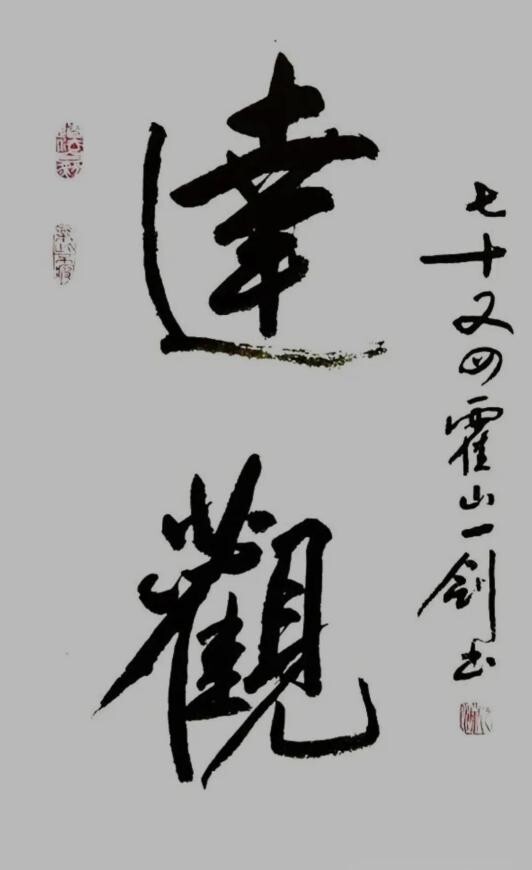 達觀
七十又四霍山一剑书